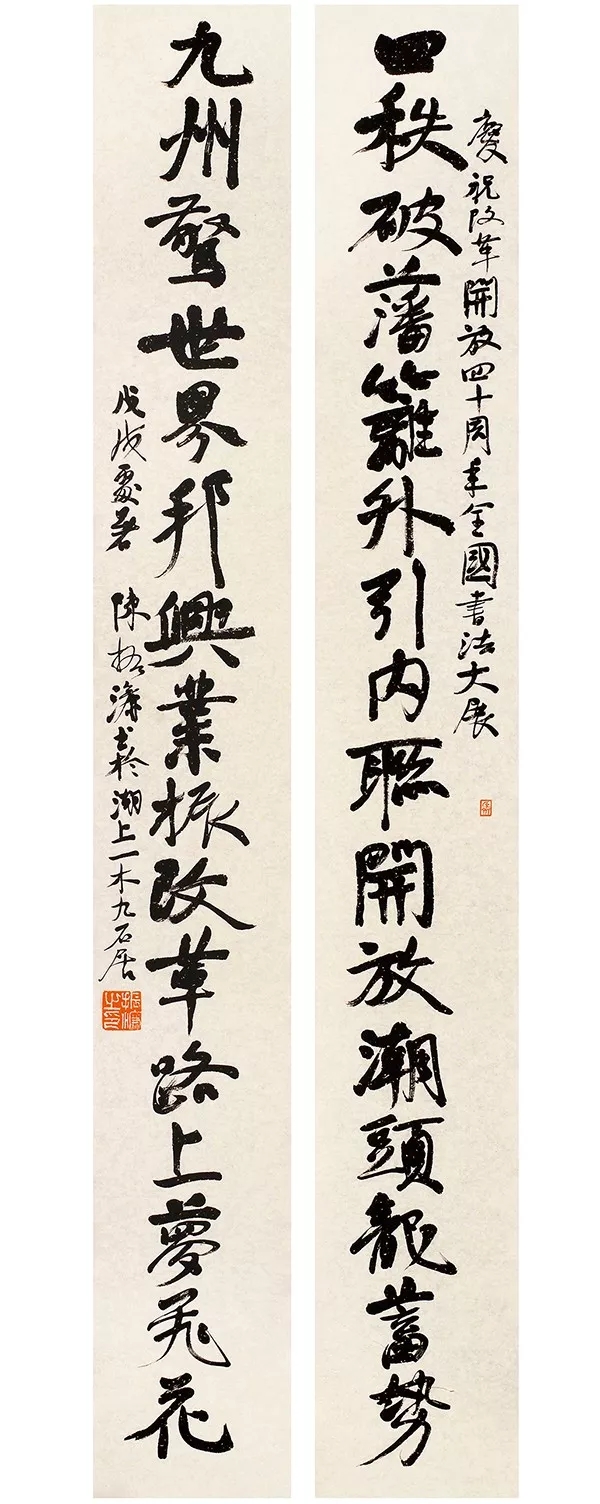 慶祝改革開放四十周年全國書法大展
四秩破藩籬外引内聯開放潮頭龍蓄勢
九州驚世界邦興業振改革路上夢飛花
戊戌處暑 陳振濂書於湖上一木九石居
振濂之印